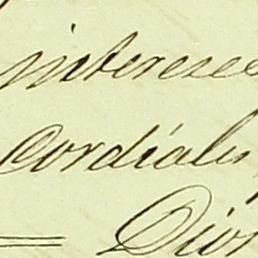 interese
cordiales,
Dion